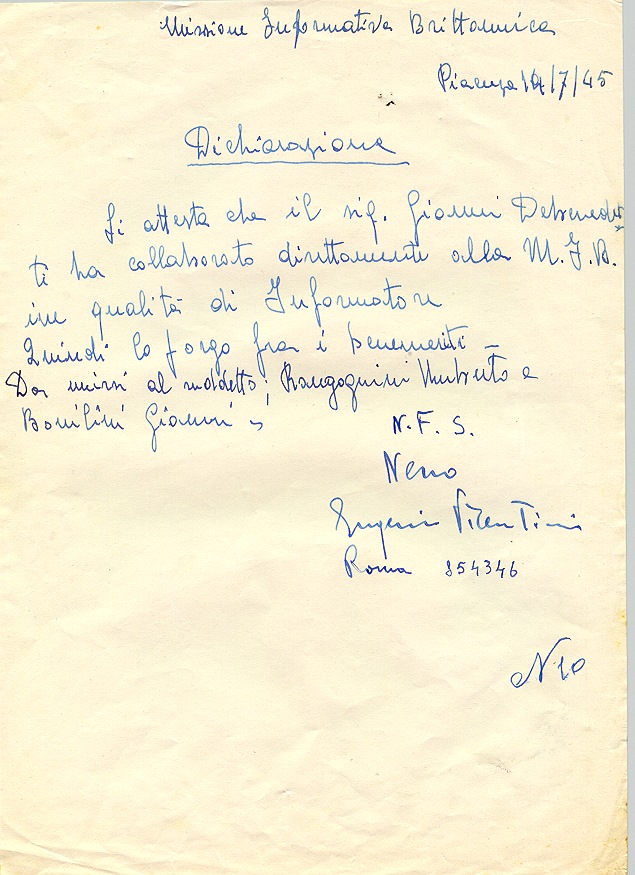 Missione Informativa Brittannica
Piacenza 14/7/45
Dichiarazione
Si attesta che il sig. Gianni Debenedet
ti ha collaborato direttamente alla M.I.B.
in qualità di Informatore
Quindi lo porgo fra i benemeriti –
Da unirsi al suddetto; Rangognini Umberto e
Bonilini Gianni
N.F.S.
Nero
Eugenio Vicentini
Roma 854346